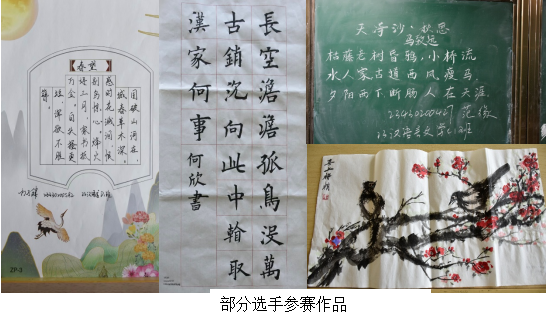 春望
国破山河在，
城春草木深。
感时花溅泪，恨
别鸟惊心。烽火
连三月，家书抵
万金。白头搔更
短，浑欲不胜
簪。
ZP-3
長空澹澹孤鳥没萬
古銷沉向此中輪取
漢家何事 何欣書
天净沙·秋思
马致远
枯藤老树昏鸦，小桥流
水人家古道西风瘦马，
夕阳西下断肠人在天涯
范缘
汉语言文学
部分选手参赛作品